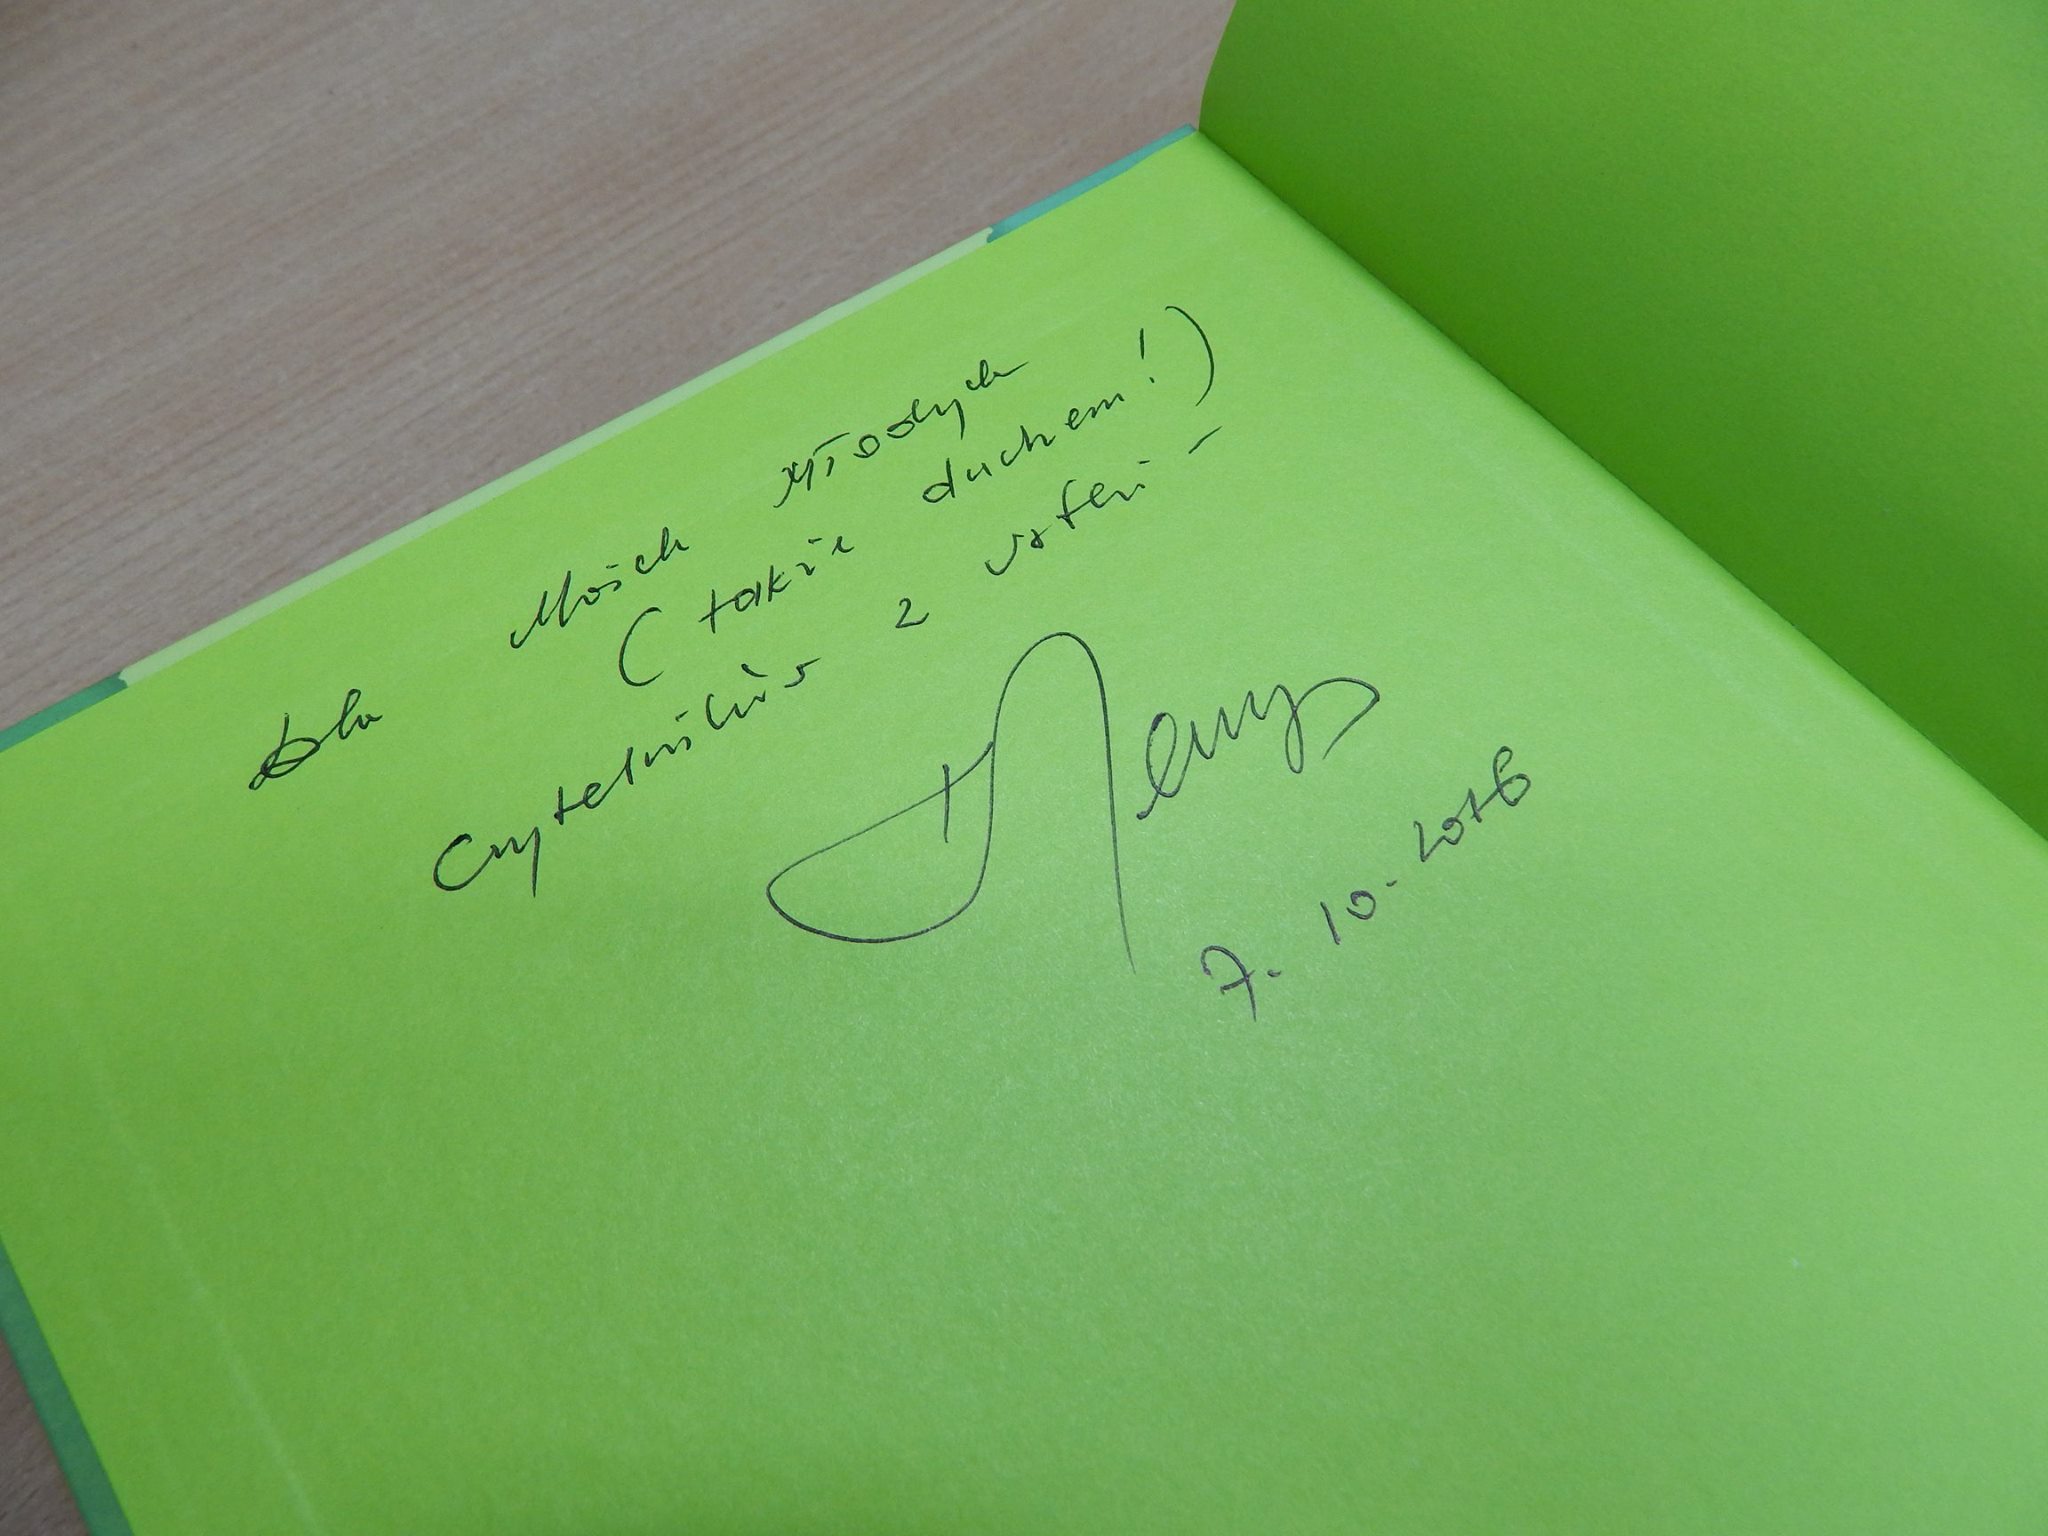 Dla Moich młodych
(także duchem!)
Czytelników z Usteki -
7. 10. 2016